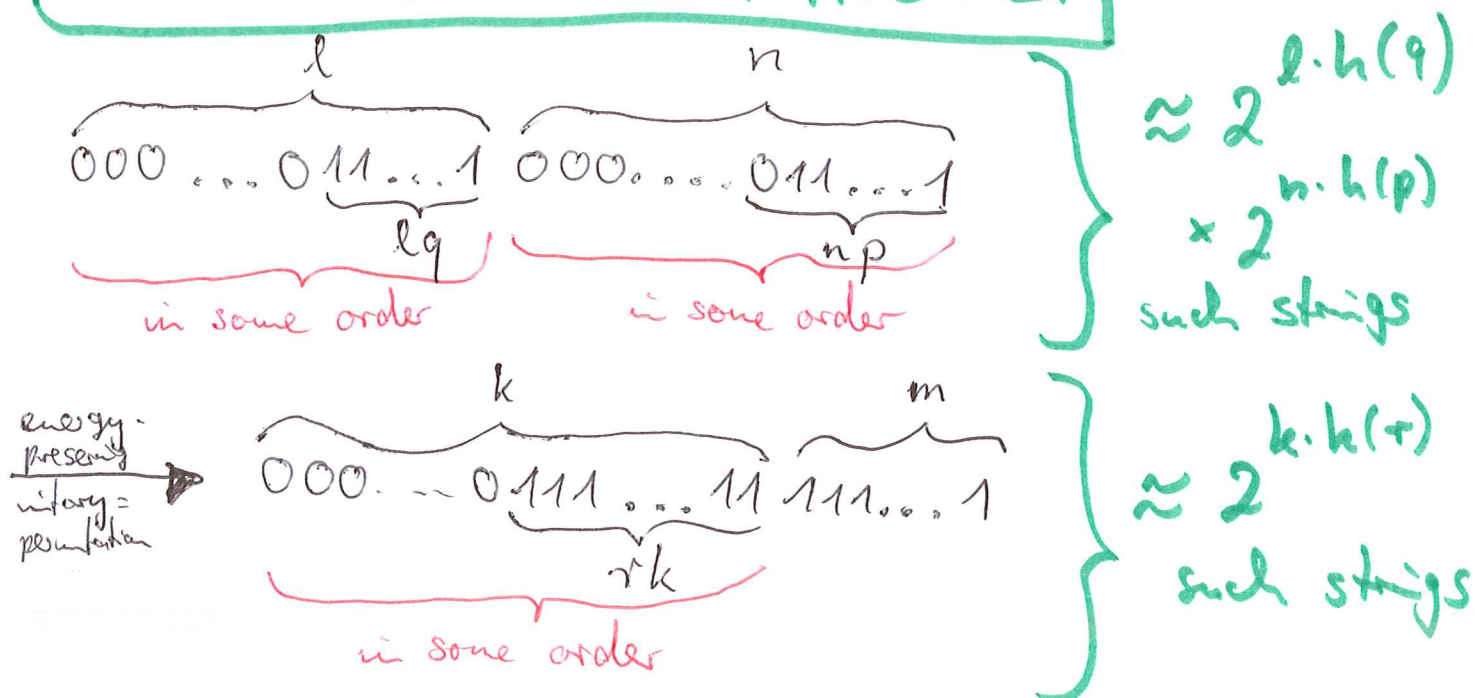 l n
000 ... 011...1 000....011...1
lq np
in some order in some order
≈ 2^{l·h(q)}
× 2^{n·h(p)}
such strings
energy-
preserving
unitary =
permutation
k m
000...0111...11 111...1
rk
in some order
≈ 2^{k·h(r)}
such strings